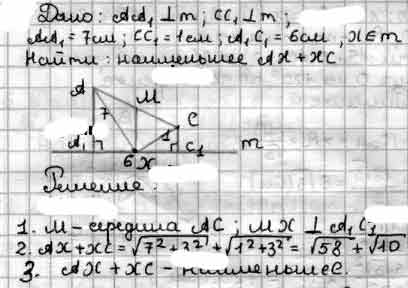 Дано: AA₁ ⊥ m; CC₁ ⊥ m;
AA₁ = 7см; CC₁ = 1см; A₁C₁ = 6см, X ∈ m
Найти: наименьшее AX + XC
A
M
7
C
A₁
1
C₁
m
6
X
Решение:
1. M - середина AC; MX ⊥ A₁C₁
2. AX + XC = √7² + 3² + √1² + 3² = √58 + √10
3. AX + XC - наименьшее.